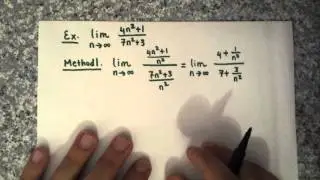 Ex. lim n→∞ (4n²+1)/(7n²+3)
Method1. lim n→∞ ((4n²+1)/n²)/((7n²+3)/n²) = lim n→∞ (4+1/n²)/(7+3/n²)